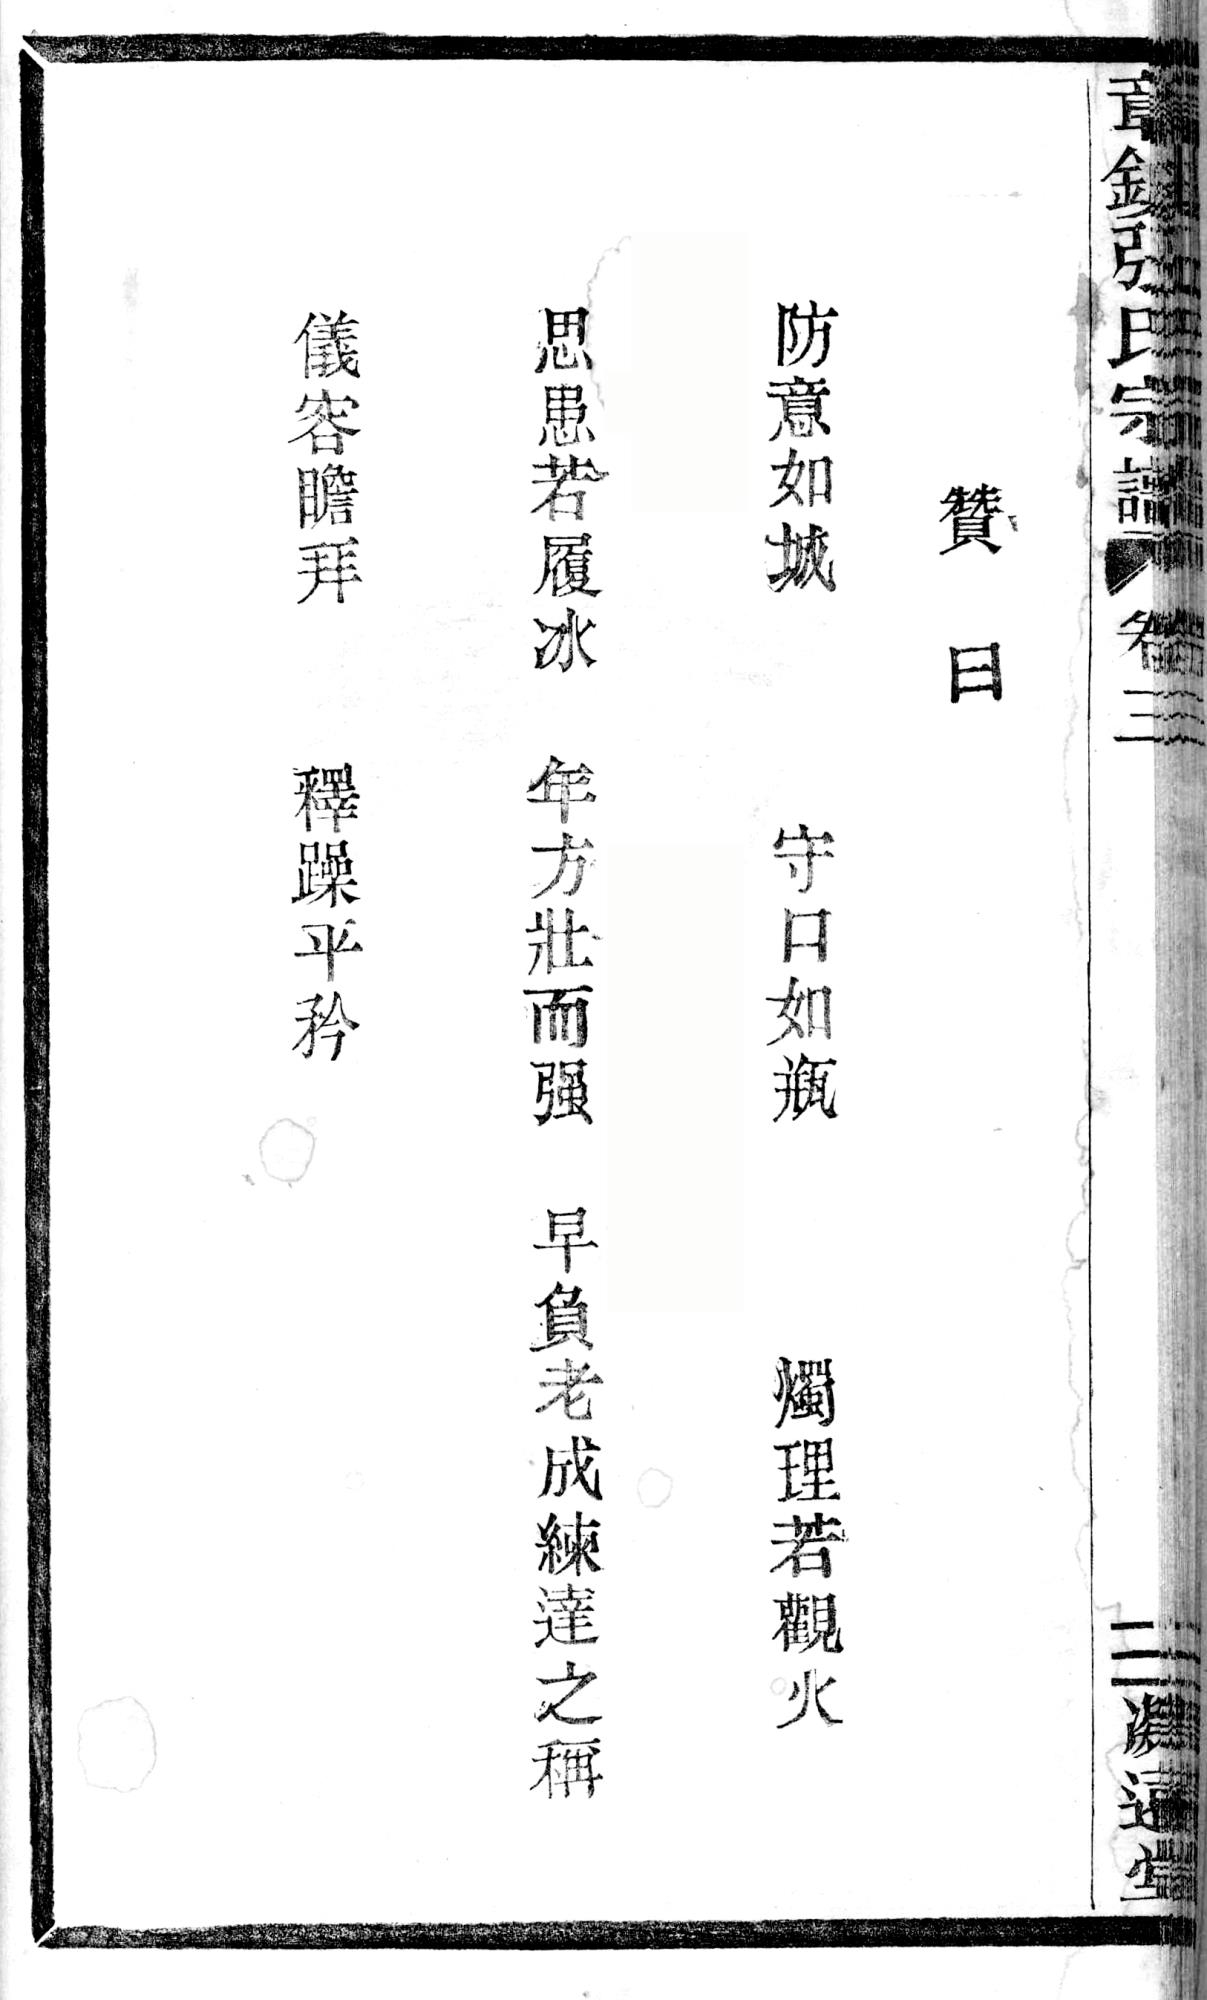 贊曰
防意如城 守口如瓶 燭理若觀火
思患若履冰 年方壯而强 早負老成練達之稱
儀容瞻拜 釋躁平矜
張氏宗譜 卷三
二
堂